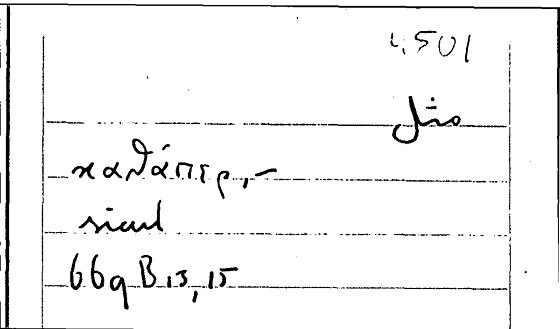 4501
مثل
καθάπερ,-
sicut
669 B 13, 15